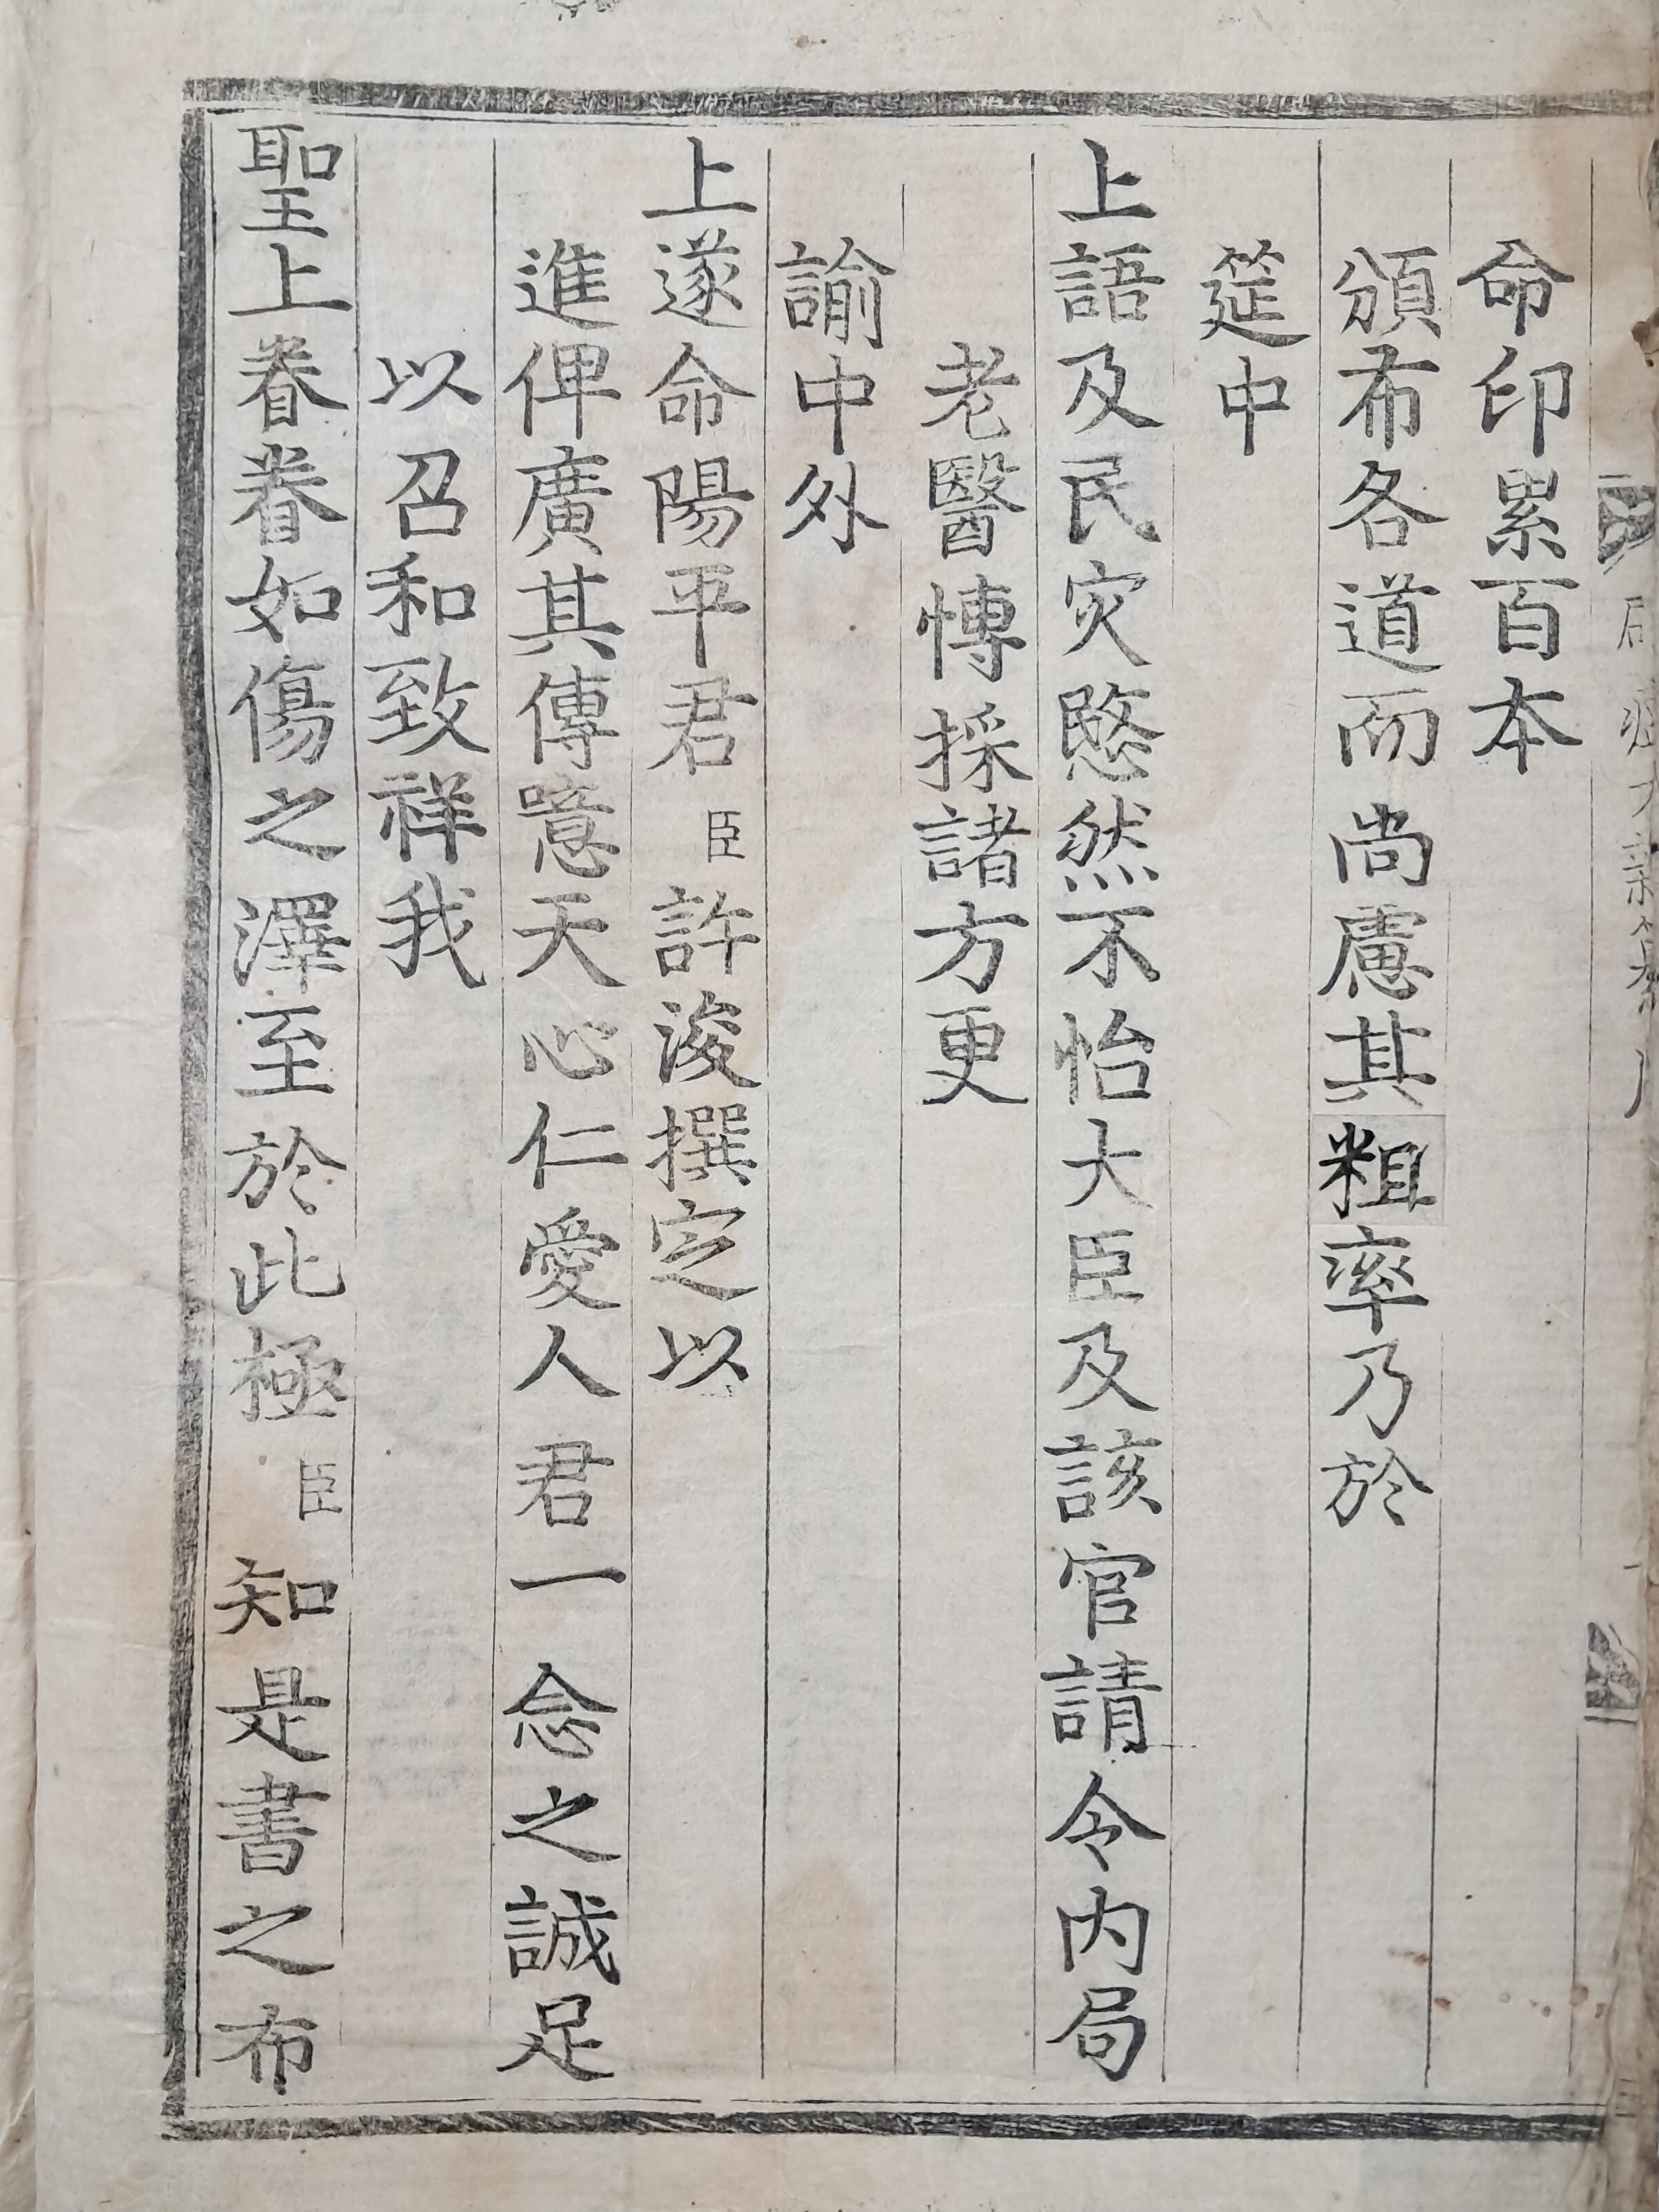 命印累百本
頒布各道而尚慮其粗率乃於
筵中
上語及民灾愍然不怡大臣及該官請令内局
老醫愽採諸方更
諭中外
上遂命陽平君臣許浚撰定以
進俾廣其傳噫天心仁愛人君一念之誠足
以召和致祥我
聖上眷眷如傷之澤至於此極臣知是書之布